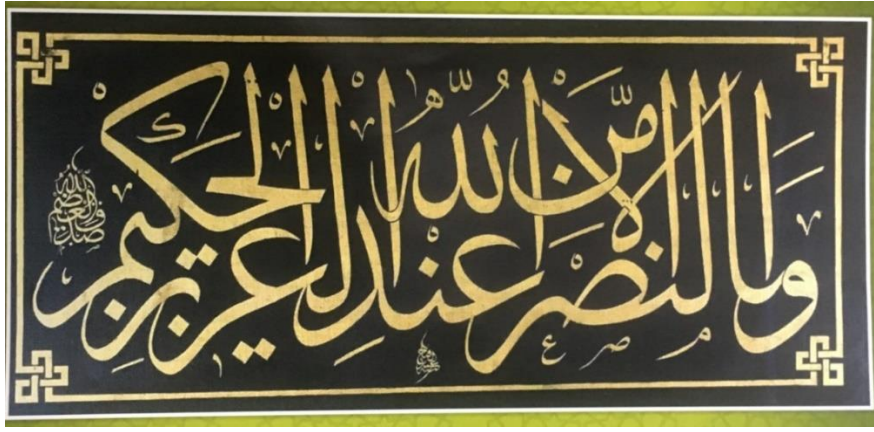 وَمَا النَّصْرُ إِلَّا مِنْ عِنْدِ اللّٰهِ الْعَزِيزِ الْحَكِيمِ
صدق الله العظيم